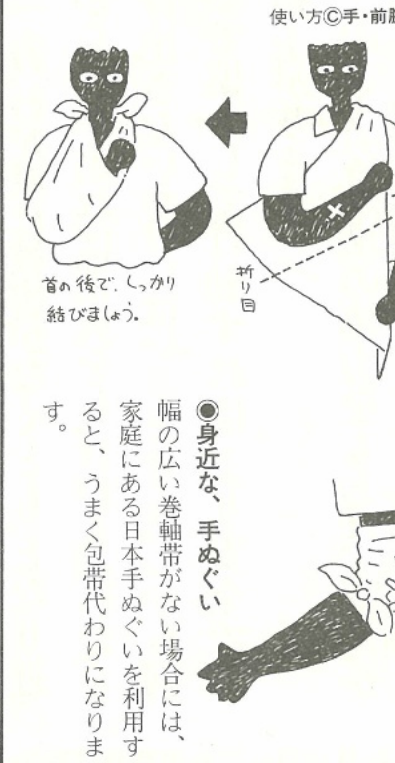 使い方Ⓒ手・前腕
折り目
首の後で、しっかり
結びましょう。
◉身近な、手ぬぐい
幅の広い巻軸帯がない場合には、
家庭にある日本手ぬぐいを利用す
ると、うまく包帯代わりになりま
す。